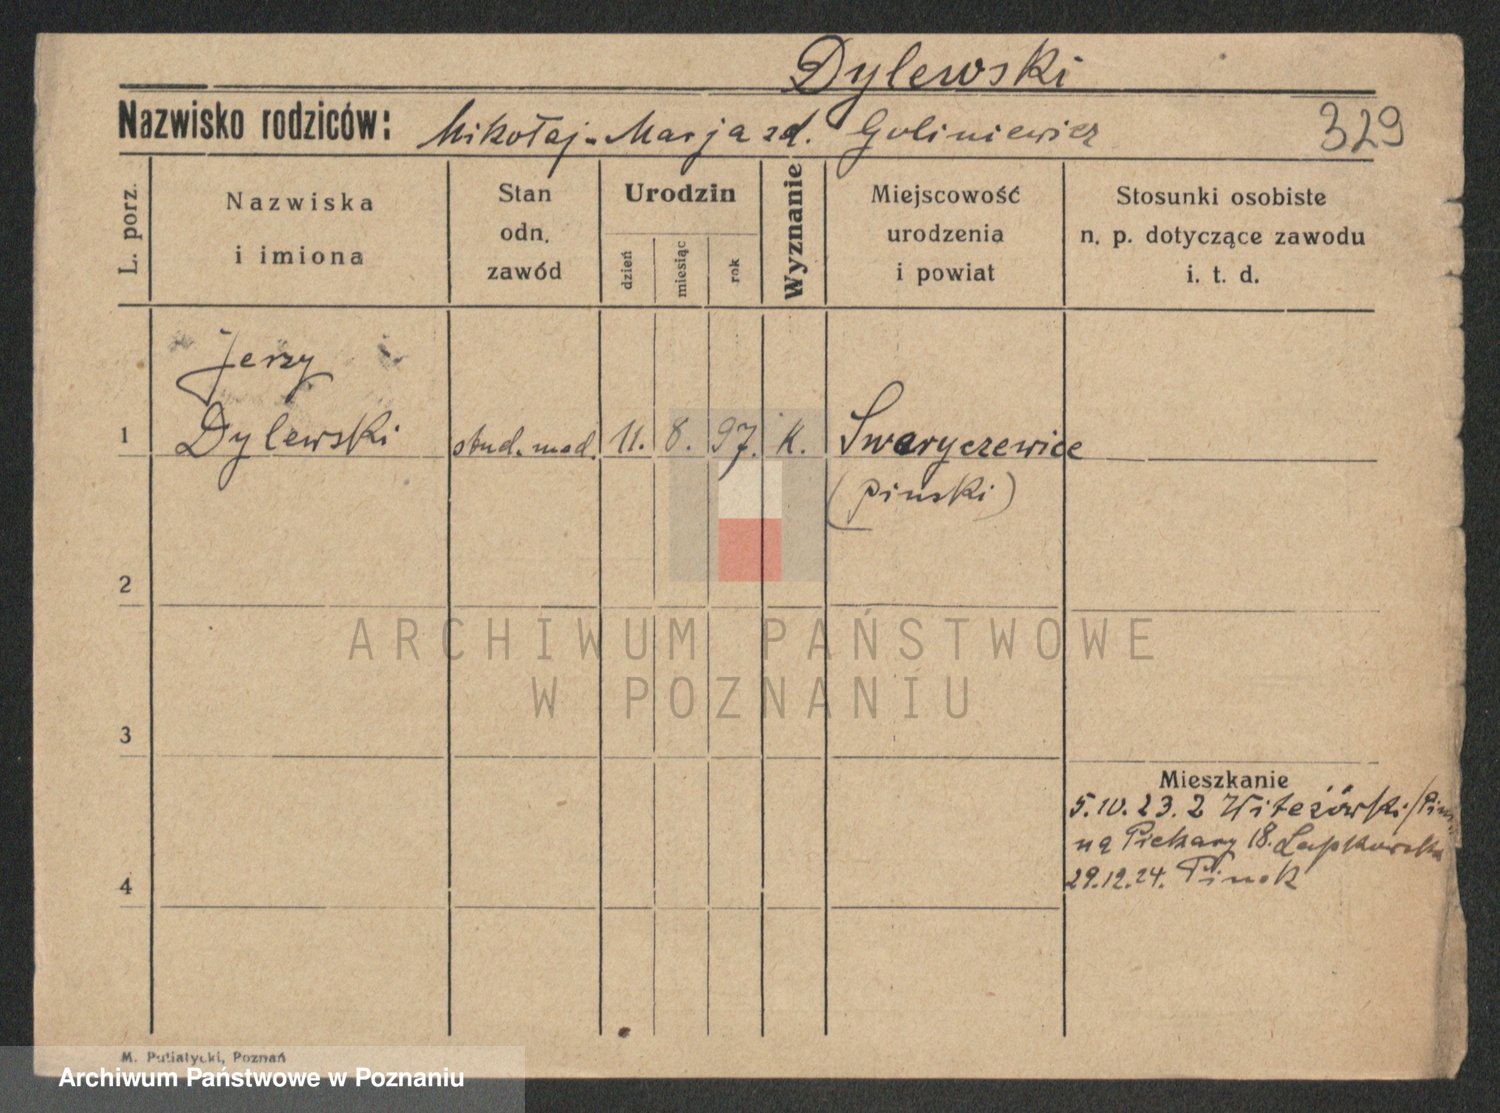 Dylewski
Nazwisko rodziców: Mikołaj - Marja zd. Guliniewicz
329
L. porz.
Nazwiska
i imiona
Stan
odn.
zawód
Urodzin
dzień
miesiąc
rok
Wyznanie
Miejscowość
urodzenia
i powiat
Stosunki osobiste
n. p. dotyczące zawodu
i. t. d.
Jerzy
1 Dylewski stud. med. 11. 8. 97. K. Swaryczewice
(piński)
2
ARCHIWUM PAŃSTWOWE
W POZNANIU
3
Mieszkanie
5.10.23. z
na Piekary 18.
4
29.12.24. Pinsk
M. Putiatycki, Poznań
Archiwum Państwowe w Poznaniu